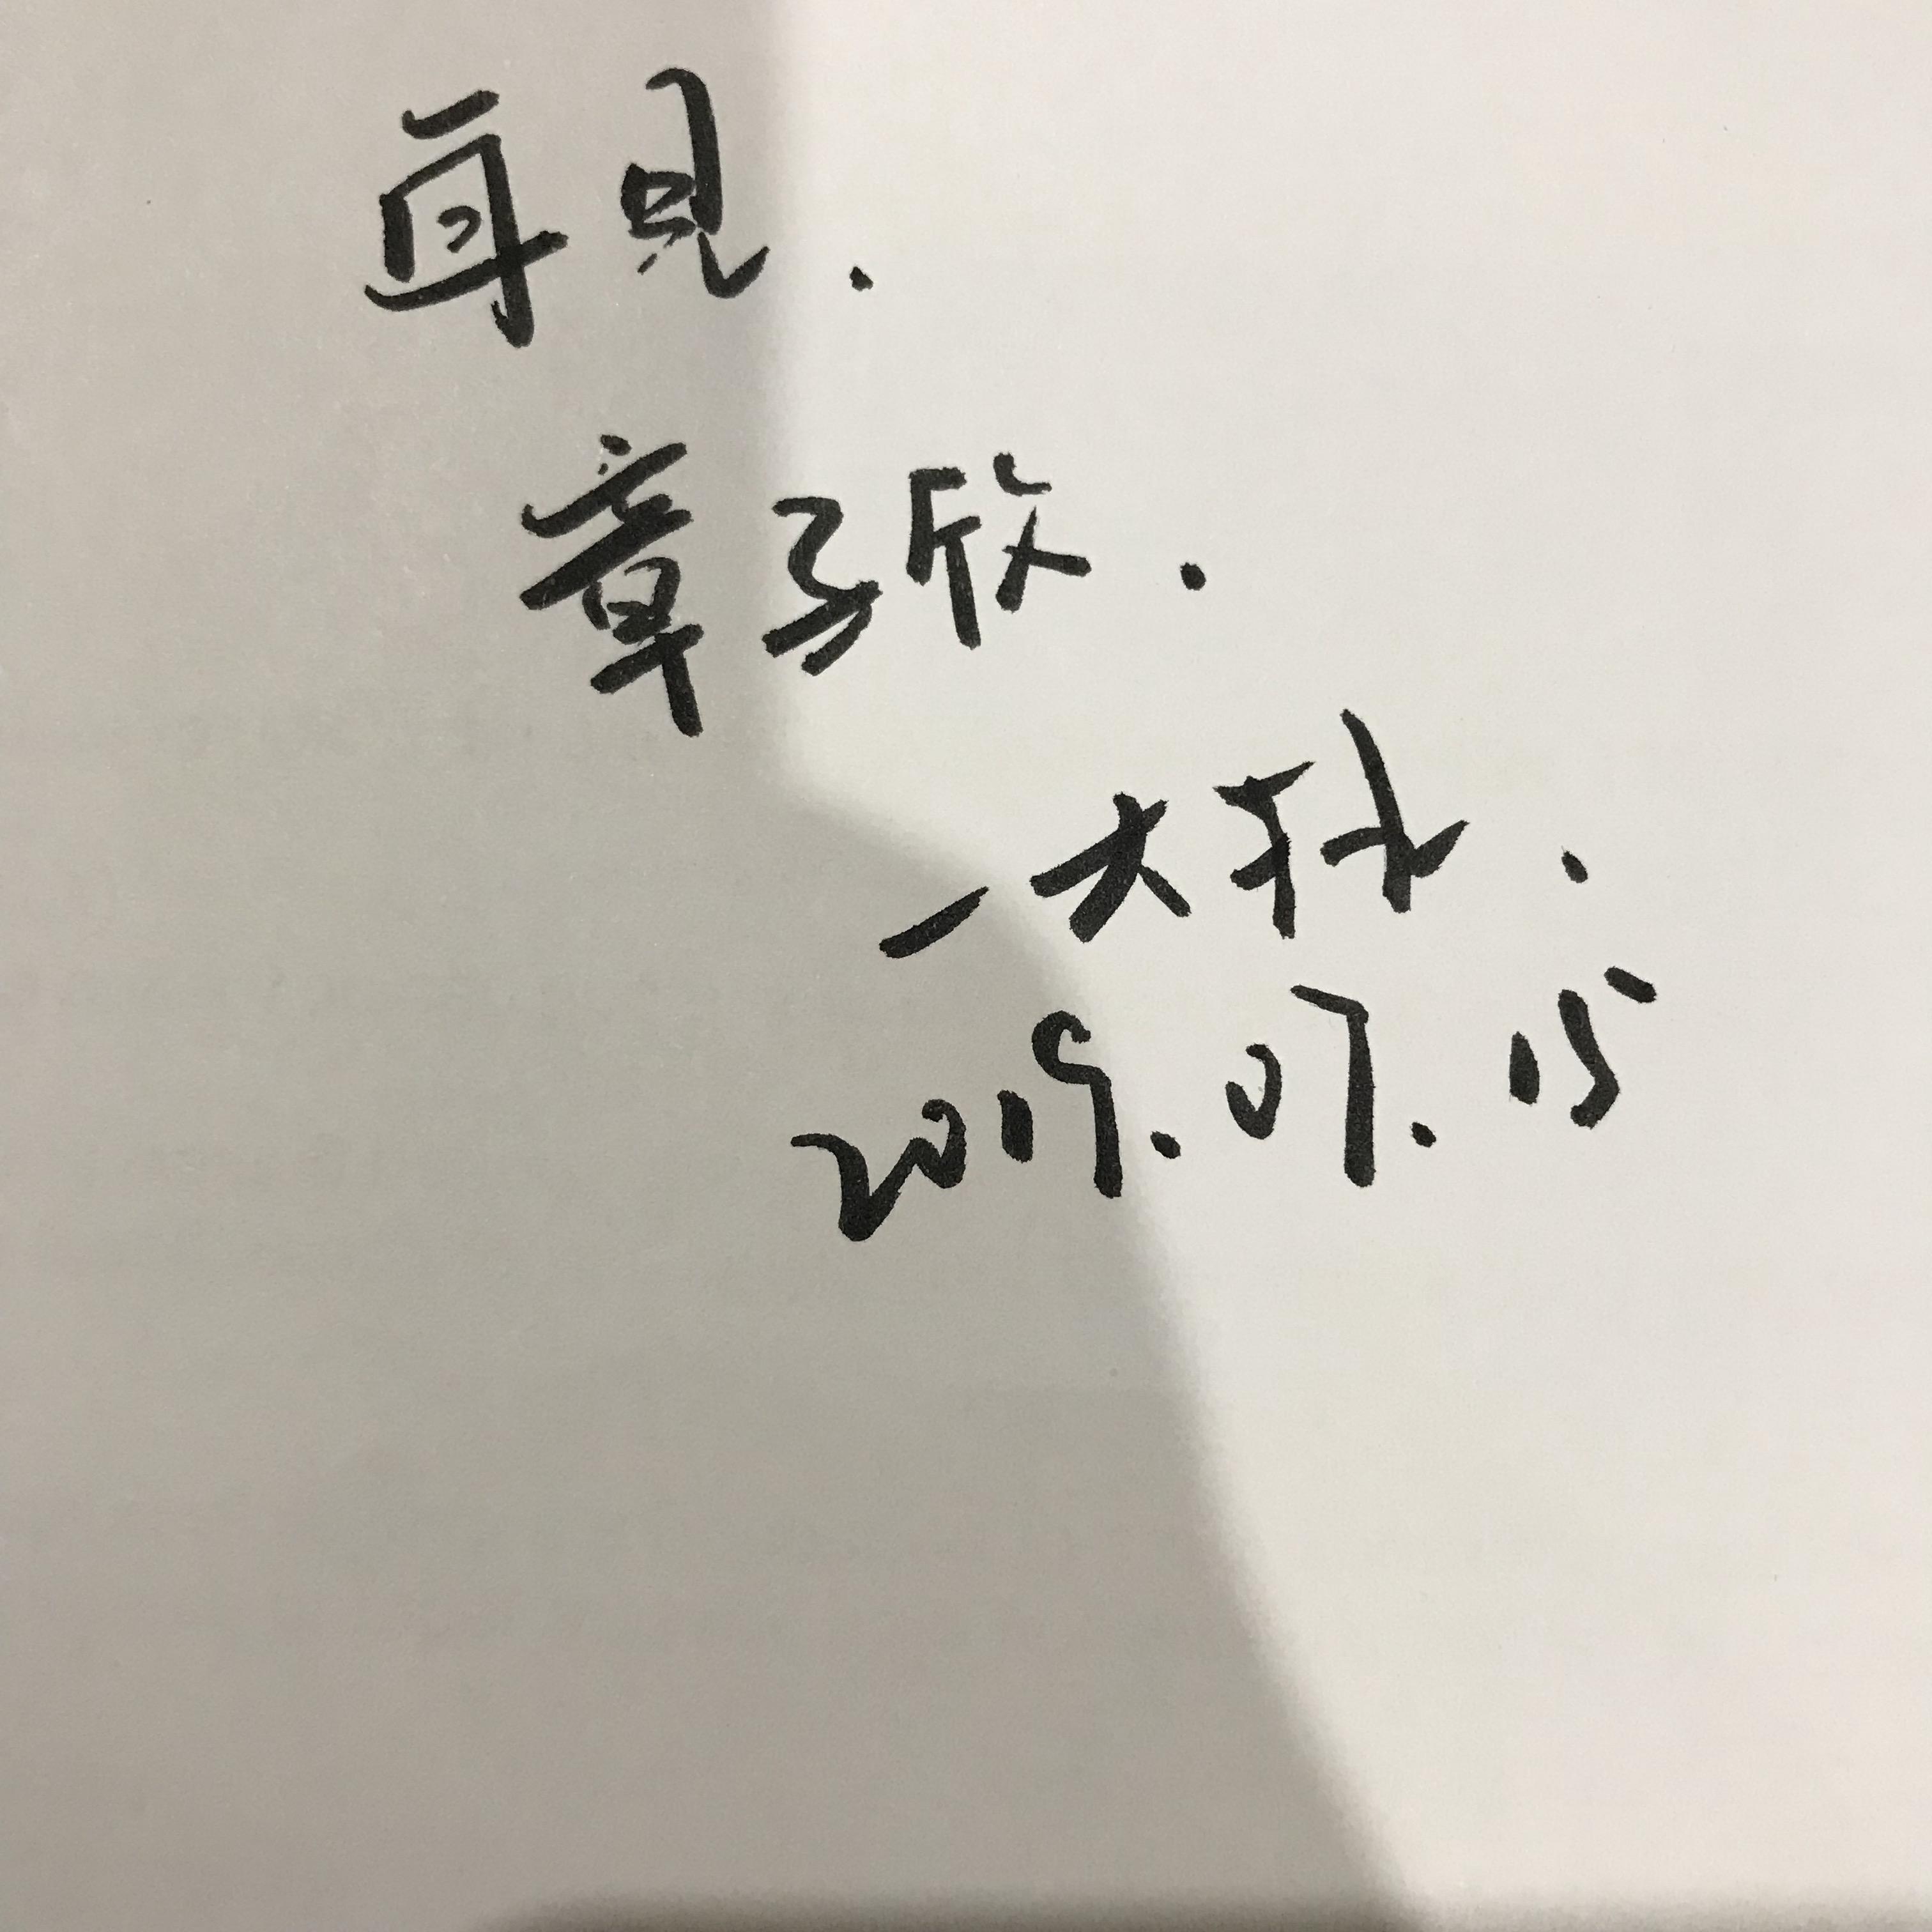 再見.
章子欣.
一大狀.
2019.07.15